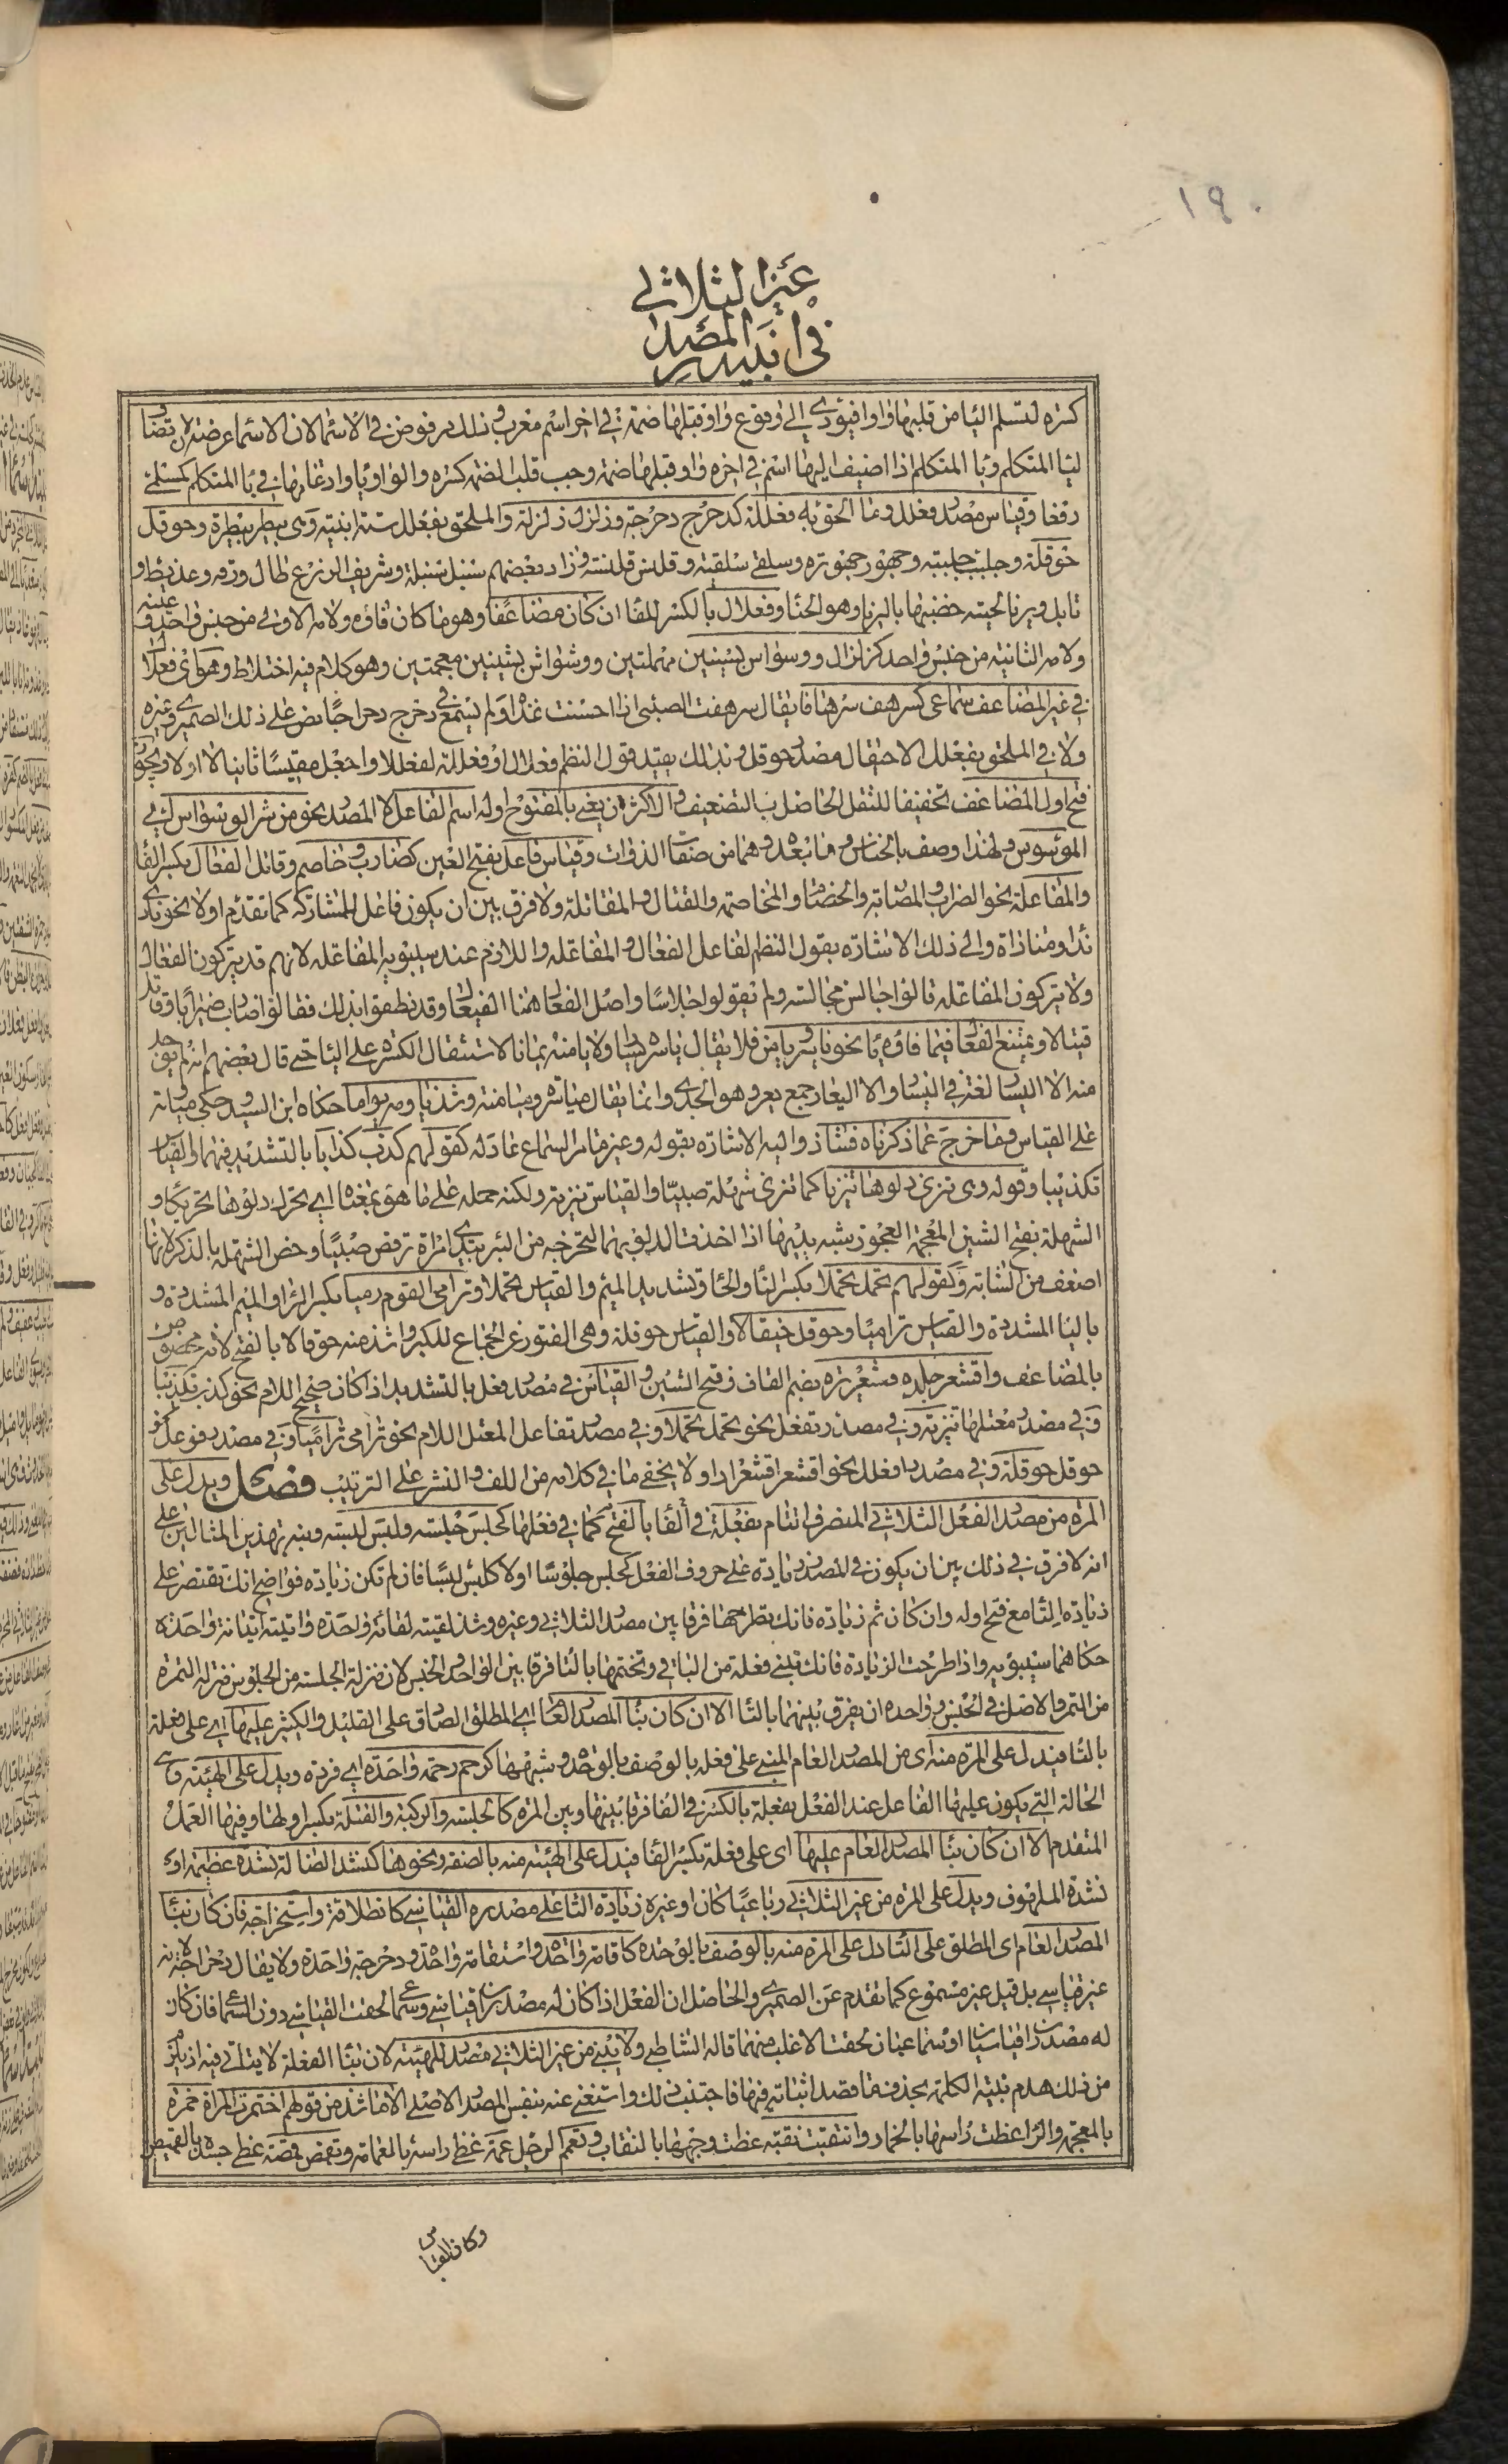 ١٩٠
غير الثلاثي
في ابنية المصدر
كسرة لتسلم اليا من قلبها واوا فيؤدي الى وقوع واو قبلها ضمة في اخر اسم معرب وذلك مرفوض في الاسما لان الاسما عرضة لان تضاف
ليا المتكلم ويا المتكلم اذا اضيف اليها اسم في اخره واو قبلها ضمة وجب قلب الضمة كسرة والواو يا وادغامها في يا المتكلم كمسلمي
رفعا وقياس مصدر فعلل وما الحق به فعللة كدحرج دحرجة وزلزل زلزلة والملحق بفعلل ستة ابنية وهي بيطر بيطرة وحوقل
حوقلة وجلبب جلببة وجهور جهورة وسلقى سلقية وقلنس قلنسة وزاد بعضهم سنبل سنبلة وشريف الزرع طال ورقه وعذيط و
تابل ويرنا لحيته خضبها باليرنا وهو الحنا وفعلال بالكسر للفا ان كان مضاعفا وهو ما كان فاؤه ولامه الاولى من جنس واحد وعينه
ولامه الثانية من جنس واحد كزلزال ووسواس بسينين مهملتين ووشواش بشينين معجمتين وهو كلام فيه اختلاط وهو اي فعلال
في غير المضاعف سماعي كسرهف سرهافا يقال سرهفت الصبي اذا احسنت غذاه ولم يسمع في دحرج دحراجا نص على ذلك الصيمري وغيره
ولا في الملحق بفعلل الا حيقال مصدر حوقل وبذلك يقيد قول النظم فعلال او فعللة لفعللا واجعل مقيسا ثانيا لا اولا ويجوز
فتح اول المضاعف تخفيفا للثقل الحاصل بالتضعيف والاكثر ان يعني بالمفتوح اوله اسم الفاعل لا المصدر نحو من شر الوسواس اي
الموسوس ولهذا وصف بالخناس وما بعده وهما من صفات الذوات وقياس فاعل بفتح العين كضارب وخاصم وقاتل الفعال بكسر الفا
والمفاعلة نحو الضراب والمضاربة والخصام والمخاصمة والقتال والمقاتلة ولا فرق بين ان يكون فاعل للمشاركة كما تقدم اولا نحو نادى
ندا ومناداة والى ذلك الاشارة بقول النظم لفاعل الفعال والمفاعله واللازم عند سيبويه المفاعله لانهم قد يتركون الفعال
ولا يتركون المفاعله قالوا جالس مجالسة ولم يقولوا جلاسا واصل الفعال هنا الفيعال وقد نطقوا بذلك فقالوا ضارب ضيرابا وقاتل
قيتالا ويمتنع الفعال فيما فاؤه يا نحو ياسر ويامن فلا يقال ياسره يسارا ولا يامنه يمانا لاستثقال الكسرة على اليا حتى قال بعضهم انه لم يوجد
منه الا اليسار لغة في اليسار والا اليعار جمع يعر وهو الجدي وانما يقال مياسرة وميامنة وشذ ياومه يواما حكاه ابن السيد وحكى مياومة
على القياس وما خرج عما ذكرناه فشاذ واليه الاشارة بقوله وغير ما مر السماع عادله كقولهم كذب كذابا بالتشديد فيهما والقياس
تكذيبا وقوله وهي تنزي دلوها تنزيا كما تنزي شهلة صبيا والقياس تنزية ولكنه حمله على ما هو بمعناه اي تحرك دلوها تحريكا و
الشهلة بفتح الشين المعجمة العجوز شبه يديها اذا اخذت الدلو بهما لتخرجه من البير بيدي امراة ترقص صبيا وخص الشهلة بالذكر لانها
اضعف من الشابة وكقولهم تحمل تحمالا بكسر التا والحا وتشديد الميم والقياس تحملا وترامى القوم رميا بكسر الرا والميم المشددة و
باليا المشددة والقياس تراميا وحوقل حيقالا والقياس حوقلة وهي الفتور عن الجماع للكبر واشذ منه حوقالا بالفتح لانه مختص
بالمضاعف واقشعر جلده قشعريرة بضم القاف وفتح الشين والقياس في مصدر فعل بالتشديد اذا كان صحيح اللام نحو كذب تكذيبا
وفي مصدر معتلها تنزية وفي مصدر تفعل نحو تحمل تحملا وفي مصدر تفاعل المعتل اللام نحو ترامى تراميا وفي مصدر فوعل نحو
حوقل حوقلة وفي مصدر افعلل نحو اقشعر اقشعرارا ولا يخفى ما في كلامه من اللف والنشر على الترتيب فصل ويدل على
المرة من مصدر الفعل الثلاثي المتصرف التام بفعلة في الفا بالفتح كما في فعلها كجلس جلسة ولبس لبسة ونبه بهذين المثالين على
انه لا فرق في ذلك بين ان يكون في المصدر زيادة على حروف الفعل كجلس جلوسا اولا كلبس لبسا فان لم تكن زيادة فواضح انك تقتصر على
زيادة التا مع فتح اوله وان كان ثم زيادة فانك تطرحها فرقا بين مصدر الثلاثي وغيره وشذ لقيته لقاة واحدة واتيته اتيانة واحدة
حكاهما سيبويه واذا طرحت الزيادة فانك تبني فعلة من الباقي وتختمها بالتا فرقا بين الواحد والجنس لان منزلة الجلسة من الجلوس منزلة التمرة
من التمر والاصل في الجنس وواحده ان يفرق بينهما بالتا الا ان كان بنا المصدر العام اي المطلق الصادق على القليل والكثير عليها اي على فعلة
بالتا فيدل على المرة منه اي من المصدر العام المبني على فعلة بالوصف بالوحدة وشبهها كرحم رحمة واحدة اي فردة ويدل على الهيئة وهي
الحالة التي يكون عليها الفاعل عند الفعل بفعلة بالكسر في الفا فرقا بينها وبين المرة كالجلسة والركبة والقتلة بكسر اولها وفيها العمل
المتقدم الا ان كان بنا المصدر العام عليها اي على فعلة بكسر الفا فيدل على الهيئة منه بالصفة ونحوها كنشد الضالة نشدة عظيمة او
نشدة الملهوف ويدل على المرة من غير الثلاثي رباعيا كان او غيره زيادة التا على مصدره القياسي كانطلاقة واستخراجة فان كان بنا
المصدر العام اي المطلق على التا دل على المرة منه بالوصف بالوحدة كاقامة واحدة واستقامة واحدة ودحرجة واحدة ولا يقال دحراجة لانه
غير قياسي بل قيل غير مسموع كما تقدم عن الصيمري والحاصل ان الفعل اذا كان له مصدران قياسي وسماعي الحقت القياسي دون السماعي فان كان
له مصدران قياسيان او سماعيان لحقت الاغلب منهما قاله الشاطبي ولا يبنى من غير الثلاثي مصدر للهيئة لان بنا الفعلة لا يتاتى فيه اذ يلزم
من ذلك هدم بنية الكلمة بحذف ما قصد اثباته فيها فاجتنب ذلك واستغني عنه بنفس المصدر الاصلي الا ما شذ من قولهم اختمرت المراة خمرة
بالمعجمة والرا غطت راسها بالخمار وانتقبت نقبة غطت وجهها بالنقاب وتعمم الرجل عمة غطى راسه بالعمامة وتقمص قمصة غطى جسده بالقميص
وكان القياس